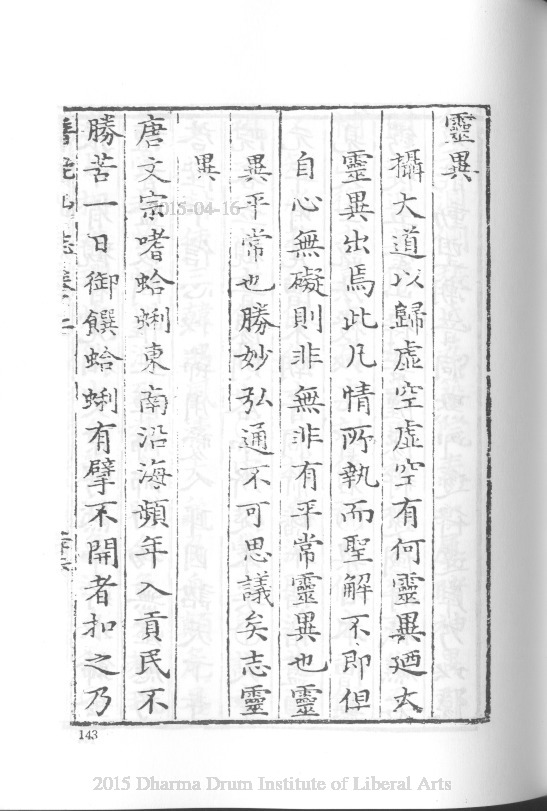 靈異
攝大道以歸虛空虛空有何靈異廼大
靈異出焉此凡情所執而聖解不即但
自心無礙則非無非有平常靈異也靈
異平常也勝妙弘通不可思議矣志靈
異
唐文宗嗜蛤蜊東南沿海頻年入貢民不
勝苦一日御饌蛤蜊有擘不開者扣之乃
143
2015-04-16
2015 Dharma Drum Institute of Liberal Arts